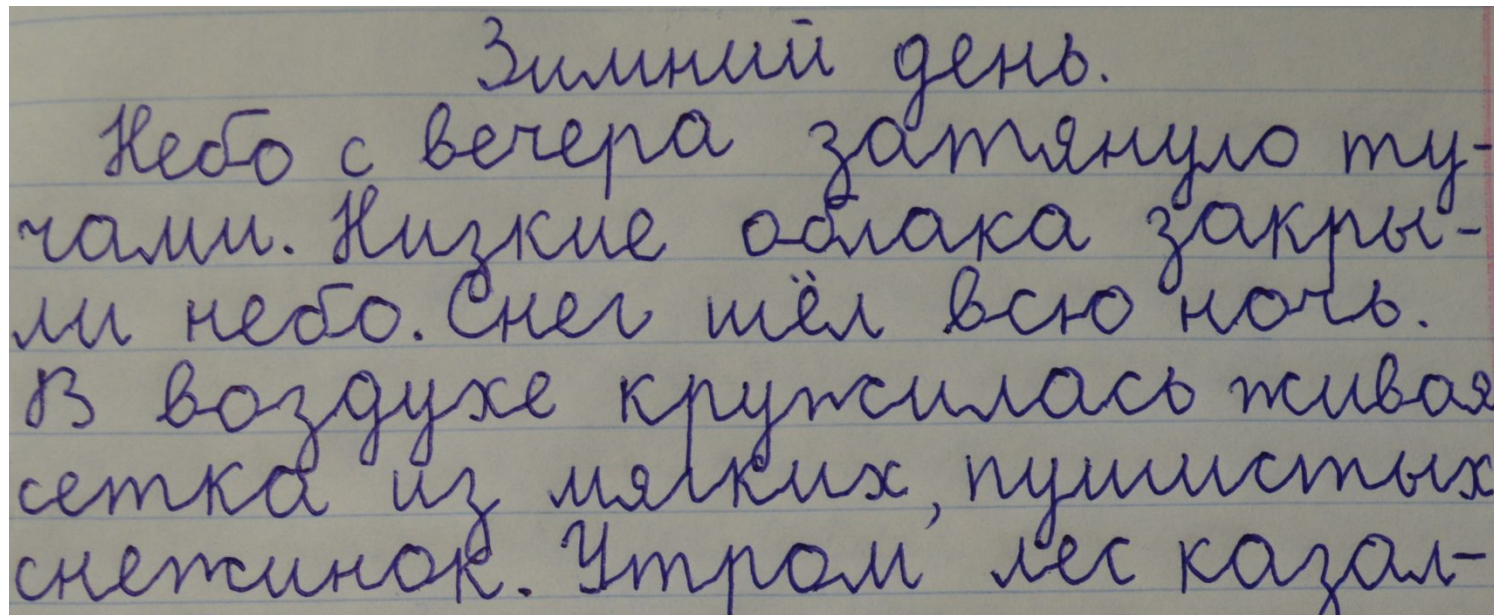 Зимний день.
Небо с вечера затянуло ту-
чами. Низкие облака закры-
ли небо. Снег шёл всю ночь.
В воздухе кружилась живая
сетка из мягких, пушистых
снежинок. Утром лес казал-